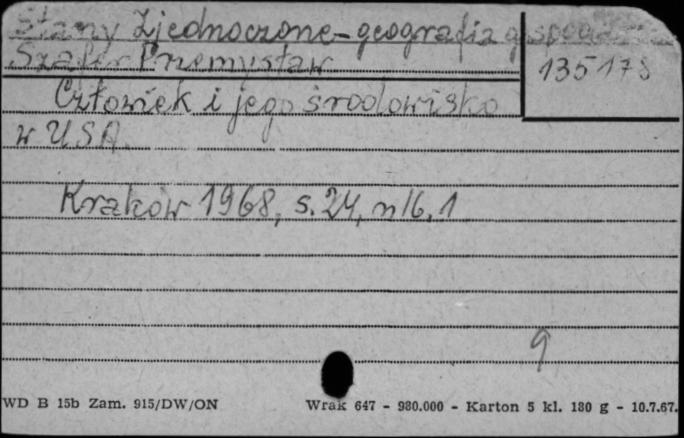 Stany Zjednoczone-geografia gospod
Szafer Przemysław
135178
Człowiek i jego środowisko
w USA.
Kraków 1968, s. 24, nlb. 1
9
WD B 15b Zam. 915/DW/ON
Wrak 647 - 980.000 - Karton 5 kl. 180 g - 10.7.67.